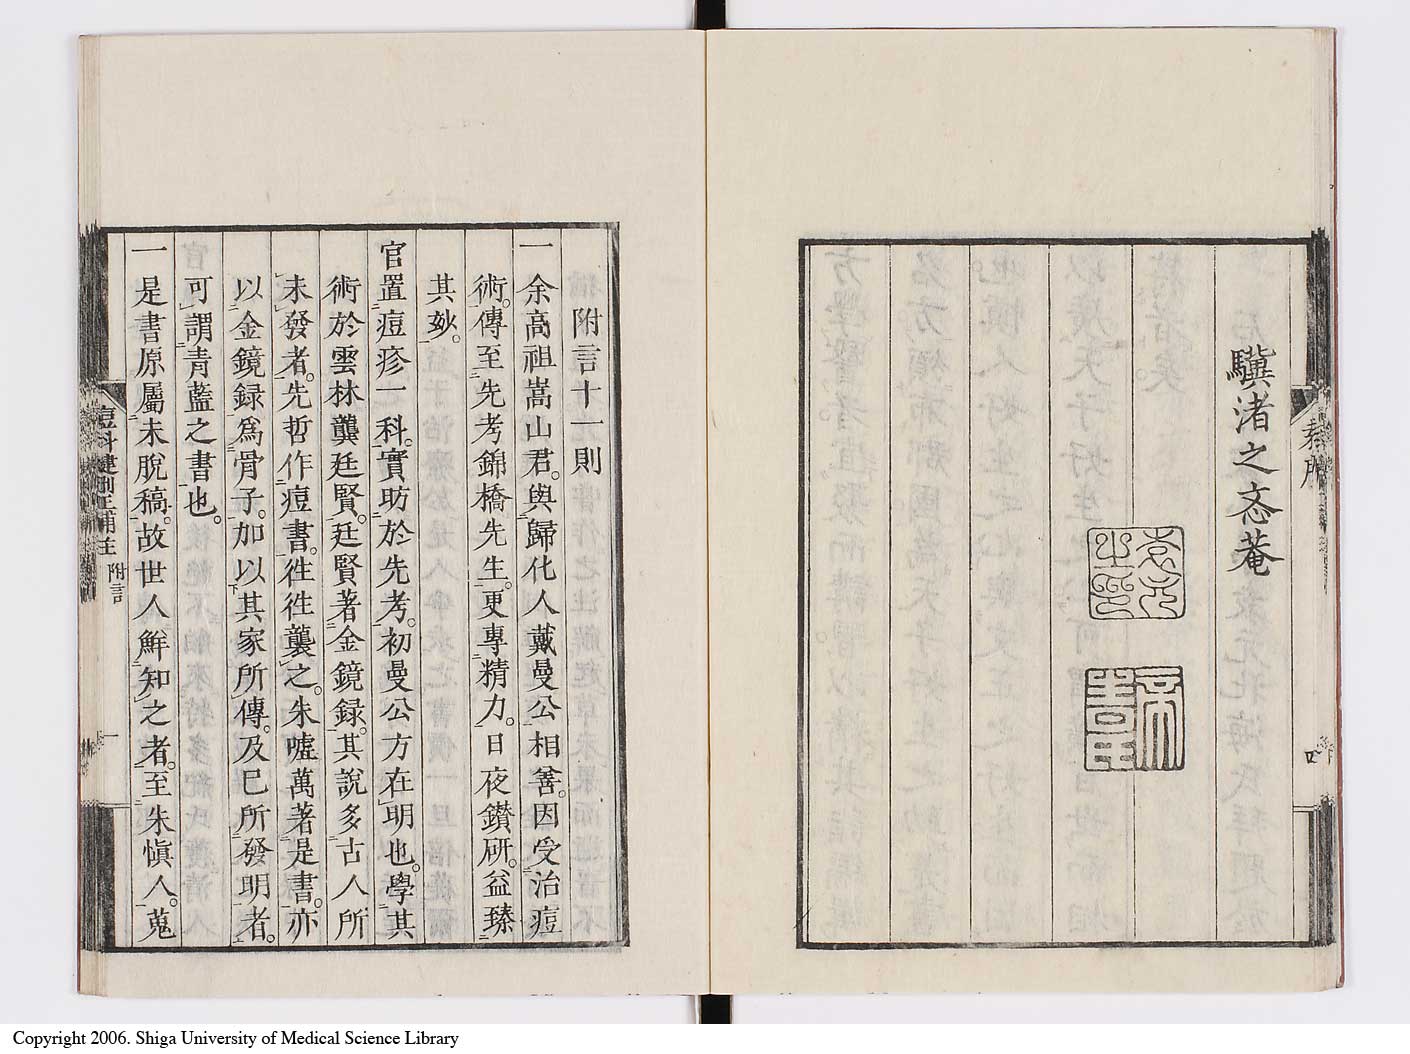 驥渚之忞菴
附言十一則
一余高祖嵩山君。與歸化人戴曼公相善。因受治痘
術。傳至先考錦橋先生。更專精力。日夜鑽研。益臻
其妙。
官置痘疹一科。實昉於先考。初曼公方在明也。學其
術於雲林龔廷賢。廷賢著金鏡録。其說多古人所
未發者。先哲作痘書。往往襲之。朱嘘萬著是書。亦
以金鏡録爲骨子。加以其家所傳。及已所發明者。
可謂青藍之書也。
一是書原屬未脫稿。故世人鮮知之者。至朱愼人。蒐
附言
Copyright 2006. Shiga University of Medical Science Library